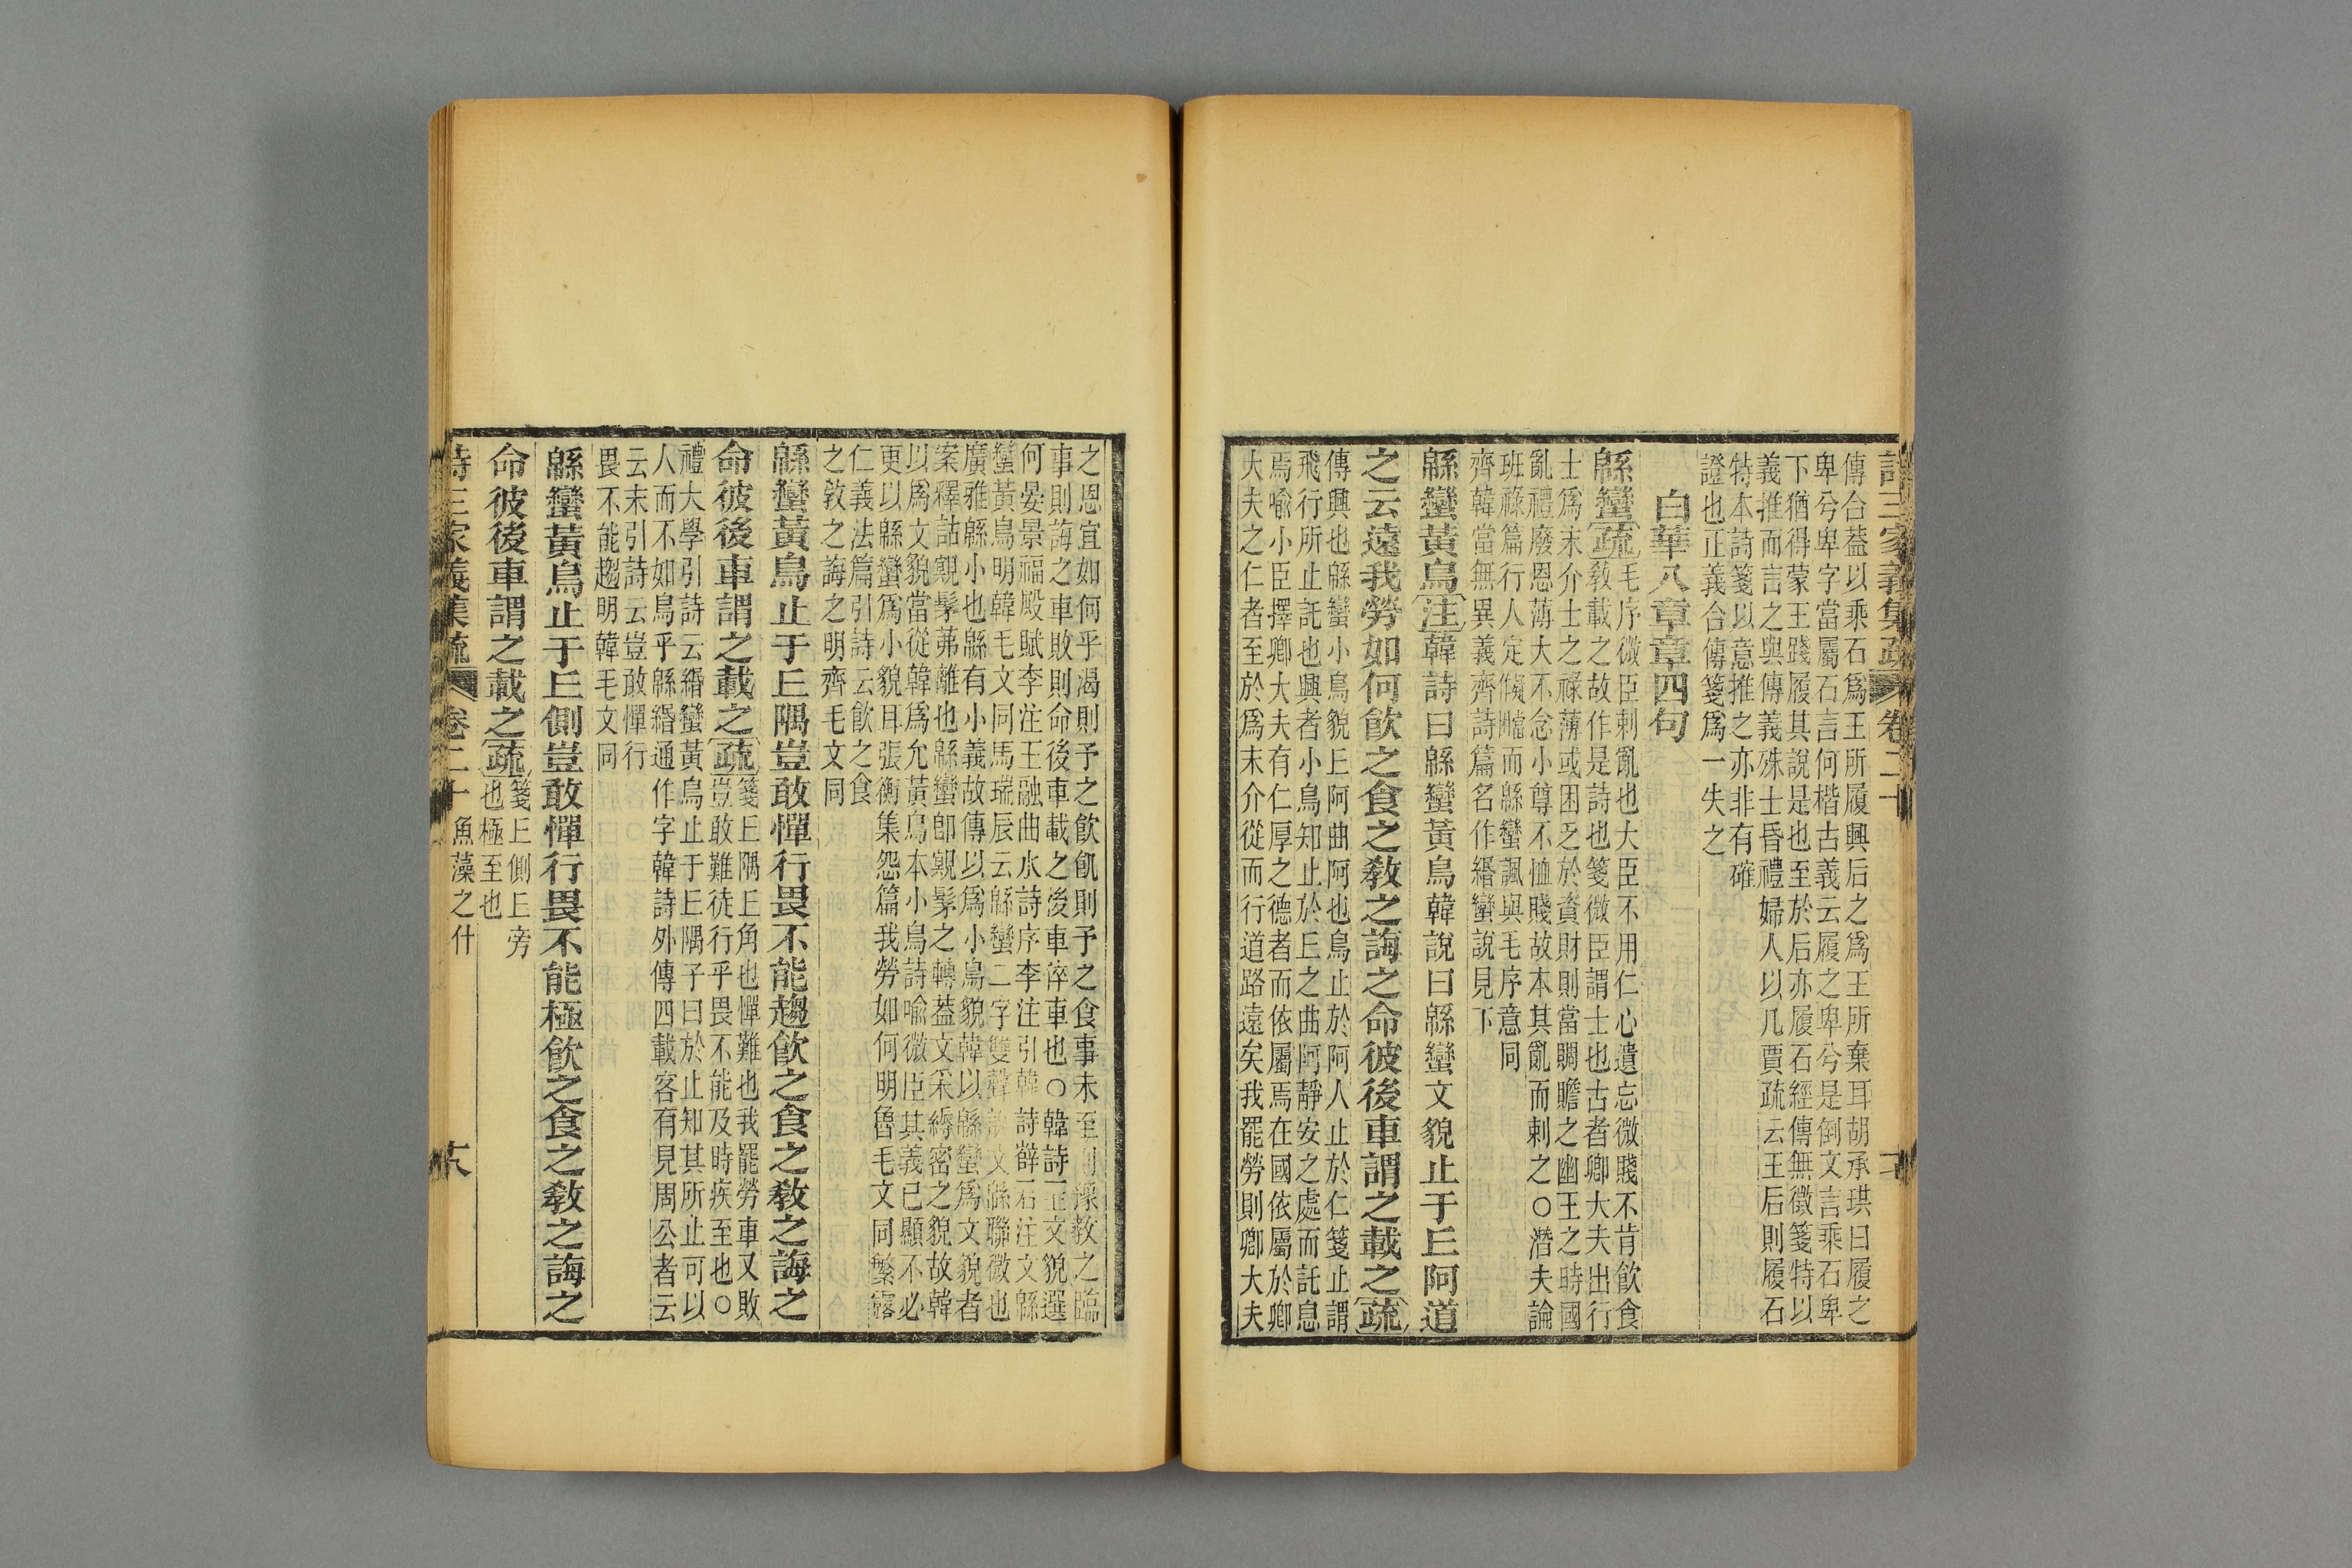 詩三家義集疏 卷二十
傳合葢以乘石爲王所履興后之爲王所棄耳胡承珙曰履之
卑兮卑字當屬石言何楷古義云履之卑兮是倒文言乘石卑
下猶得蒙王踐履其說是也至於后亦履石經傳無徵箋特以
義推而言之與傳義殊士昏禮婦人以几賈疏云王后則履石
特本詩箋以意推之亦非有確
證也正義合傳箋爲一失之
白華八章章四句
緜蠻疏毛序微臣刺亂也大臣不用仁心遺忘微賤不肯飮食
敎載之故作是詩也箋微臣謂士也古者卿大夫出行
士爲末介士之祿薄或困乏於資財則當賙贍之幽王之時國
亂禮廢恩薄大不念小尊不恤賤故本其亂而刺之○潛夫論
班祿篇行人定而緜蠻諷與毛序意同
齊韓當無異義齊詩篇名作緡蠻說見下
緜蠻黃鳥注韓詩曰緜蠻黃鳥韓說曰緜蠻文貌止于𠀉阿道
之云遠我勞如何飮之食之敎之誨之命彼後車謂之載之疏
傳興也緜蠻小鳥貌𠀉阿曲阿也鳥止於阿人止於仁箋止謂
飛行所止託也興者小鳥知止於𠀉之曲阿靜安之處而託息
焉喩小臣擇卿大夫有仁厚之德者而依屬焉在國依屬於卿
大夫之仁者至於爲末介從而行道路遠矣我罷勞則卿大夫
之恩宜如何乎渴則予之飮飢則予之食事未至則豫敎之臨
事則誨之車敗則命後車載之後車倅車也○韓詩一正文貌選
何晏景福殿賦李注王融曲水詩序李注引韓詩薛君注文緜
蠻黃鳥明韓毛文同馬瑞辰云緜蠻二字雙聲說文緜聯微也
廣雅緜小也緜有小義故傳以爲小鳥貌韓以緜蠻爲文貌者
案釋詁覭髳茀離也緜蠻卽覭髳之轉葢文采縟密之貌故韓
以爲文貌當從韓爲允黃鳥本小鳥詩喩微臣其義已顯不必
更以緜蠻爲小貌耳張衡集怨篇我勞如何明魯毛文同繁露
仁義法篇引詩云飮之食
之敎之誨之明齊毛文同
緜蠻黃鳥止于𠀉隅豈敢憚行畏不能趨飮之食之敎之誨之
命彼後車謂之載之疏箋𠀉隅𠀉角也憚難也我罷勞車又敗
豈敢難徒行乎畏不能及時疾至也○
禮大學引詩云緡蠻黃鳥止于𠀉隅子曰於止知其所止可以
人而不如鳥乎緜緡通作字韓詩外傳四載客有見周公者云
云末引詩云豈敢憚行
畏不能趨明韓毛文同
緜蠻黃鳥止于𠀉側豈敢憚行畏不能極飮之食之敎之誨之
命彼後車謂之載之疏箋𠀉側𠀉旁
也極至也
詩三家義集疏 卷二十 魚藻之什 六